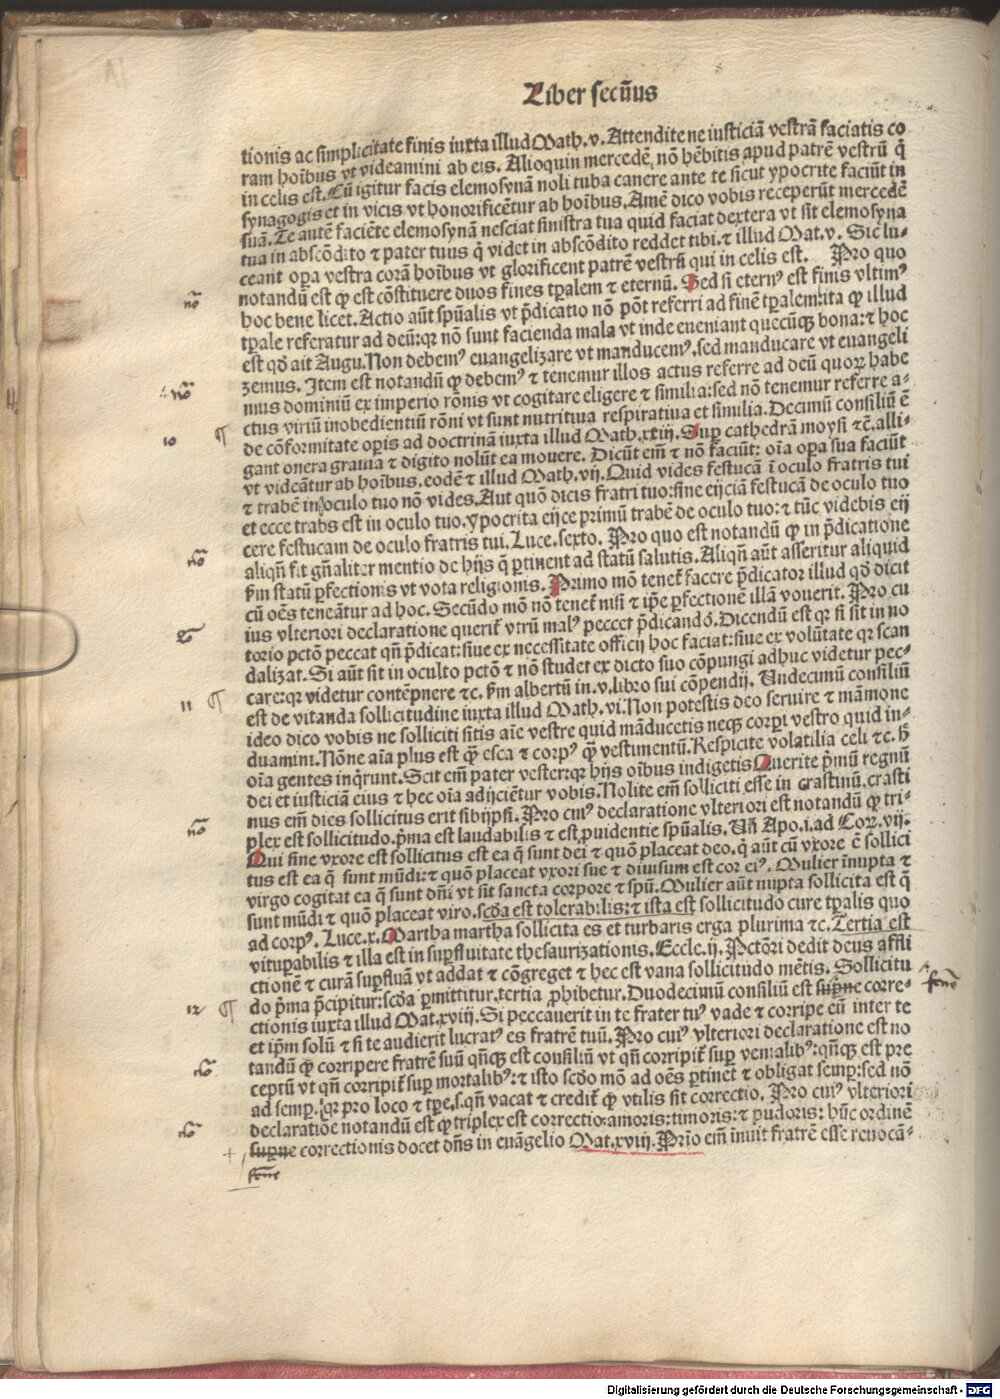 Liber secūus
tionis ac simplicitate finis iuxta illud Math.v. Attendite ne iusticiā vestrā faciatis co
ram hoībus vt videamini ab eis. Alioquin mercedē, nō hēbitis apud patrē vestrū q̄
in celis est. Cū igitur facis elemosynā noli tuba canere ante te sicut ypocrite faciūt in
synagogis et in vicis vt honorificētur ab hoībus. Amē dico vobis receperūt mercedē
suā. Te autē faciēte elemosynā nesciat sinistra tua quid faciat dextera vt sit elemosyna
tua in abscōdito ⁊ pater tuus q̄ videt in abscōdito reddet tibi. ⁊ illud Mat.v. Sic lu-
ceant oꝑa vestra corā hoībus vt glorificent patrē vestrū qui in celis est. Pro quo
nō
notandū est ꝙ est cōstituere duos fines tꝑalem ⁊ eternū. Sed si eternꝰ est finis vltimꝰ
hoc bene licet. Actio aūt spūalis vt p̄dicatio nō pōt referri ad finē tꝑalem: ita ꝙ illud
tꝑale referatur ad deū: qr nō sunt facienda mala vt inde eueniant quecūqꝫ bona: ⁊ hoc
est qd̄ ait Augu. Non debemꝰ euangelizare vt manducemꝰ, sed manducare vt euangeli
nō
zemus. Item est notandū ꝙ debemꝰ ⁊ tenemur illos actus referre ad deū quoꝝ habe
mus dominiū ex imperio rōnis vt cogitare eligere ⁊ similia: sed nō tenemur referre a-
ctus viriū inobedientiū rōni vt sunt nutritiua respiratiua et similia. Decimū consiliū ē
10 ¶
de cōformitate oꝑis ad doctrinā iuxta illud Math.xxiij. Suꝑ cathedrā moysi ⁊c̄. alli-
gant onera grauia ⁊ digito nolūt ea mouere. Dicūt em̄ ⁊ nō faciūt: oīa oꝑa sua faciūt
vt videātur ab hoībus. eodē ⁊ illud Math.vij. Quid vides festucā ī oculo fratris tui
⁊ trabē in oculo tuo nō vides. Aut quō dicis fratri tuo: sine eijciā festucā de oculo tuo
et ecce trabs est in oculo tuo. ypocrita eijce primū trabē de oculo tuo: ⁊ tūc videbis eij
cere festucam de oculo fratris tui. Luce.sexto. Pro quo est notandū ꝙ in p̄dicatione
nō
aliqn̄ fit gn̄aliter mentio de hijs q̄ ꝑtinent ad statū salutis. Aliqn̄ aūt asseritur aliquid
ẜm statū ꝑfectionis vt vota religionis. Primo mō tenet̄ facere p̄dicator illud qd̄ dicit
cū oēs teneātur ad hoc. Secūdo mō nō tenet̄ nisi ⁊ ip̄e ꝑfectionē illā vouerit. Pro cu
ius vlteriori declaratione querit̄ vtrū malꝰ peccet p̄dicando. Dicendū est qr si sit in no
torio pctō peccat qn̄ p̄dicat: siue ex necessitate officij hoc faciat: siue ex volūtate qr scan
dalizat. Si aūt sit in oculto pctō ⁊ nō studet ex dicto suo cōpungi adhuc videtur pec-
care: qr videtur contēpnere ⁊c. ẜm albertū in.v. libro sui cōpendij. Undecimū consiliū
11 ¶
est de vitanda sollicitudine iuxta illud Math.vi. Non potestis deo seruire ⁊ māmone
ideo dico vobis ne solliciti sitis aīe vestre quid māducetis neqꝫ corꝑi vestro quid in-
duamini. Nōne aīa plus est ꝙ̄ esca ⁊ corpꝰ ꝙ̄ vestimentū. Respicite volatilia celi ⁊c. h̄
oīa gentes inq̄runt. Scit em̄ pater vester: qr hijs oībus indigetis. Querite p̄mū regnū
dei et iusticiā eius ⁊ hec oīa adijciētur vobis. Nolite em̄ solliciti esse in crastinū. crasti
nus em̄ dies sollicitus erit sibijpsi. Pro cuiꝰ declaratione vlteriori est notandū ꝙ tri-
nō
plex est sollicitudo. p̄ma est laudabilis ⁊ est ꝓuidentie spūalis. Un̄ Apo.i.ad Cor.vij.
Qui sine vxore est sollicitus est ea q̄ sunt dei ⁊ quō placeat deo. q̄ aūt cū vxore ē sollici
tus est ea q̄ sunt mūdi: ⁊ quō placeat vxori sue ⁊ diuisum est cor eiꝰ. Mulier īnupta ⁊
virgo cogitat ea q̄ sunt dn̄i vt sit sancta corpore ⁊ spū. Mulier aūt nupta sollicita est q̄
sunt mūdi ⁊ quō placeat viro. scd̄a est tolerabilis: ⁊ ista est sollicitudo cure tꝑalis quo
ad corpꝰ. Luce.x. Martha martha sollicita es et turbaris erga plurima ⁊c. Tertia est
vituꝑabilis ⁊ illa est in suꝑfluitate thesaurizationis. Eccle.ij. Pctōri dedit deus affli
ctionē ⁊ curā suꝑfluā vt addat ⁊ cōgreget ⁊ hec est vana sollicitudo mētis. Sollicitu
do p̄ma p̄cipitur: scd̄a ꝑmittitur. tertia ꝓhibetur. Duodecimū consiliū est suꝑne corre-
12 ¶
ctionis iuxta illud Mat.xviij. Si peccauerit in te frater tuꝰ vade ⁊ corripe eū inter te
et ip̄m solū ⁊ si te audierit lucratꝰ es fratrē tuū. Pro cuiꝰ vlteriori declaratione est no
tandū ꝙ corripere fratrē suū qn̄qꝫ est consiliū vt qn̄ corripit̄ suꝑ venialibꝰ: qn̄qꝫ est pre
nō
ceptū vt qn̄ corripit̄ suꝑ mortalibꝰ: ⁊ isto scd̄o mō ad oēs ꝑtinet ⁊ obligat semꝑ: sed nō
ad semꝑ. qr pro loco ⁊ tꝑe.s.qn̄ vacat ⁊ credit̄ ꝙ vtilis sit correctio. Pro cuiꝰ vlteriori
declaratiōe notandū est ꝙ triplex est correctio: amoris: timoris: ⁊ pudoris: hūc ordinē
nō
suꝑne correctionis docet dn̄s in euāgelio Mat.xviij. Prīo em̄ īnuit fratrē esse reuocā-
Digitalisierung gefördert durch die Deutsche Forschungsgemeinschaft - DFG